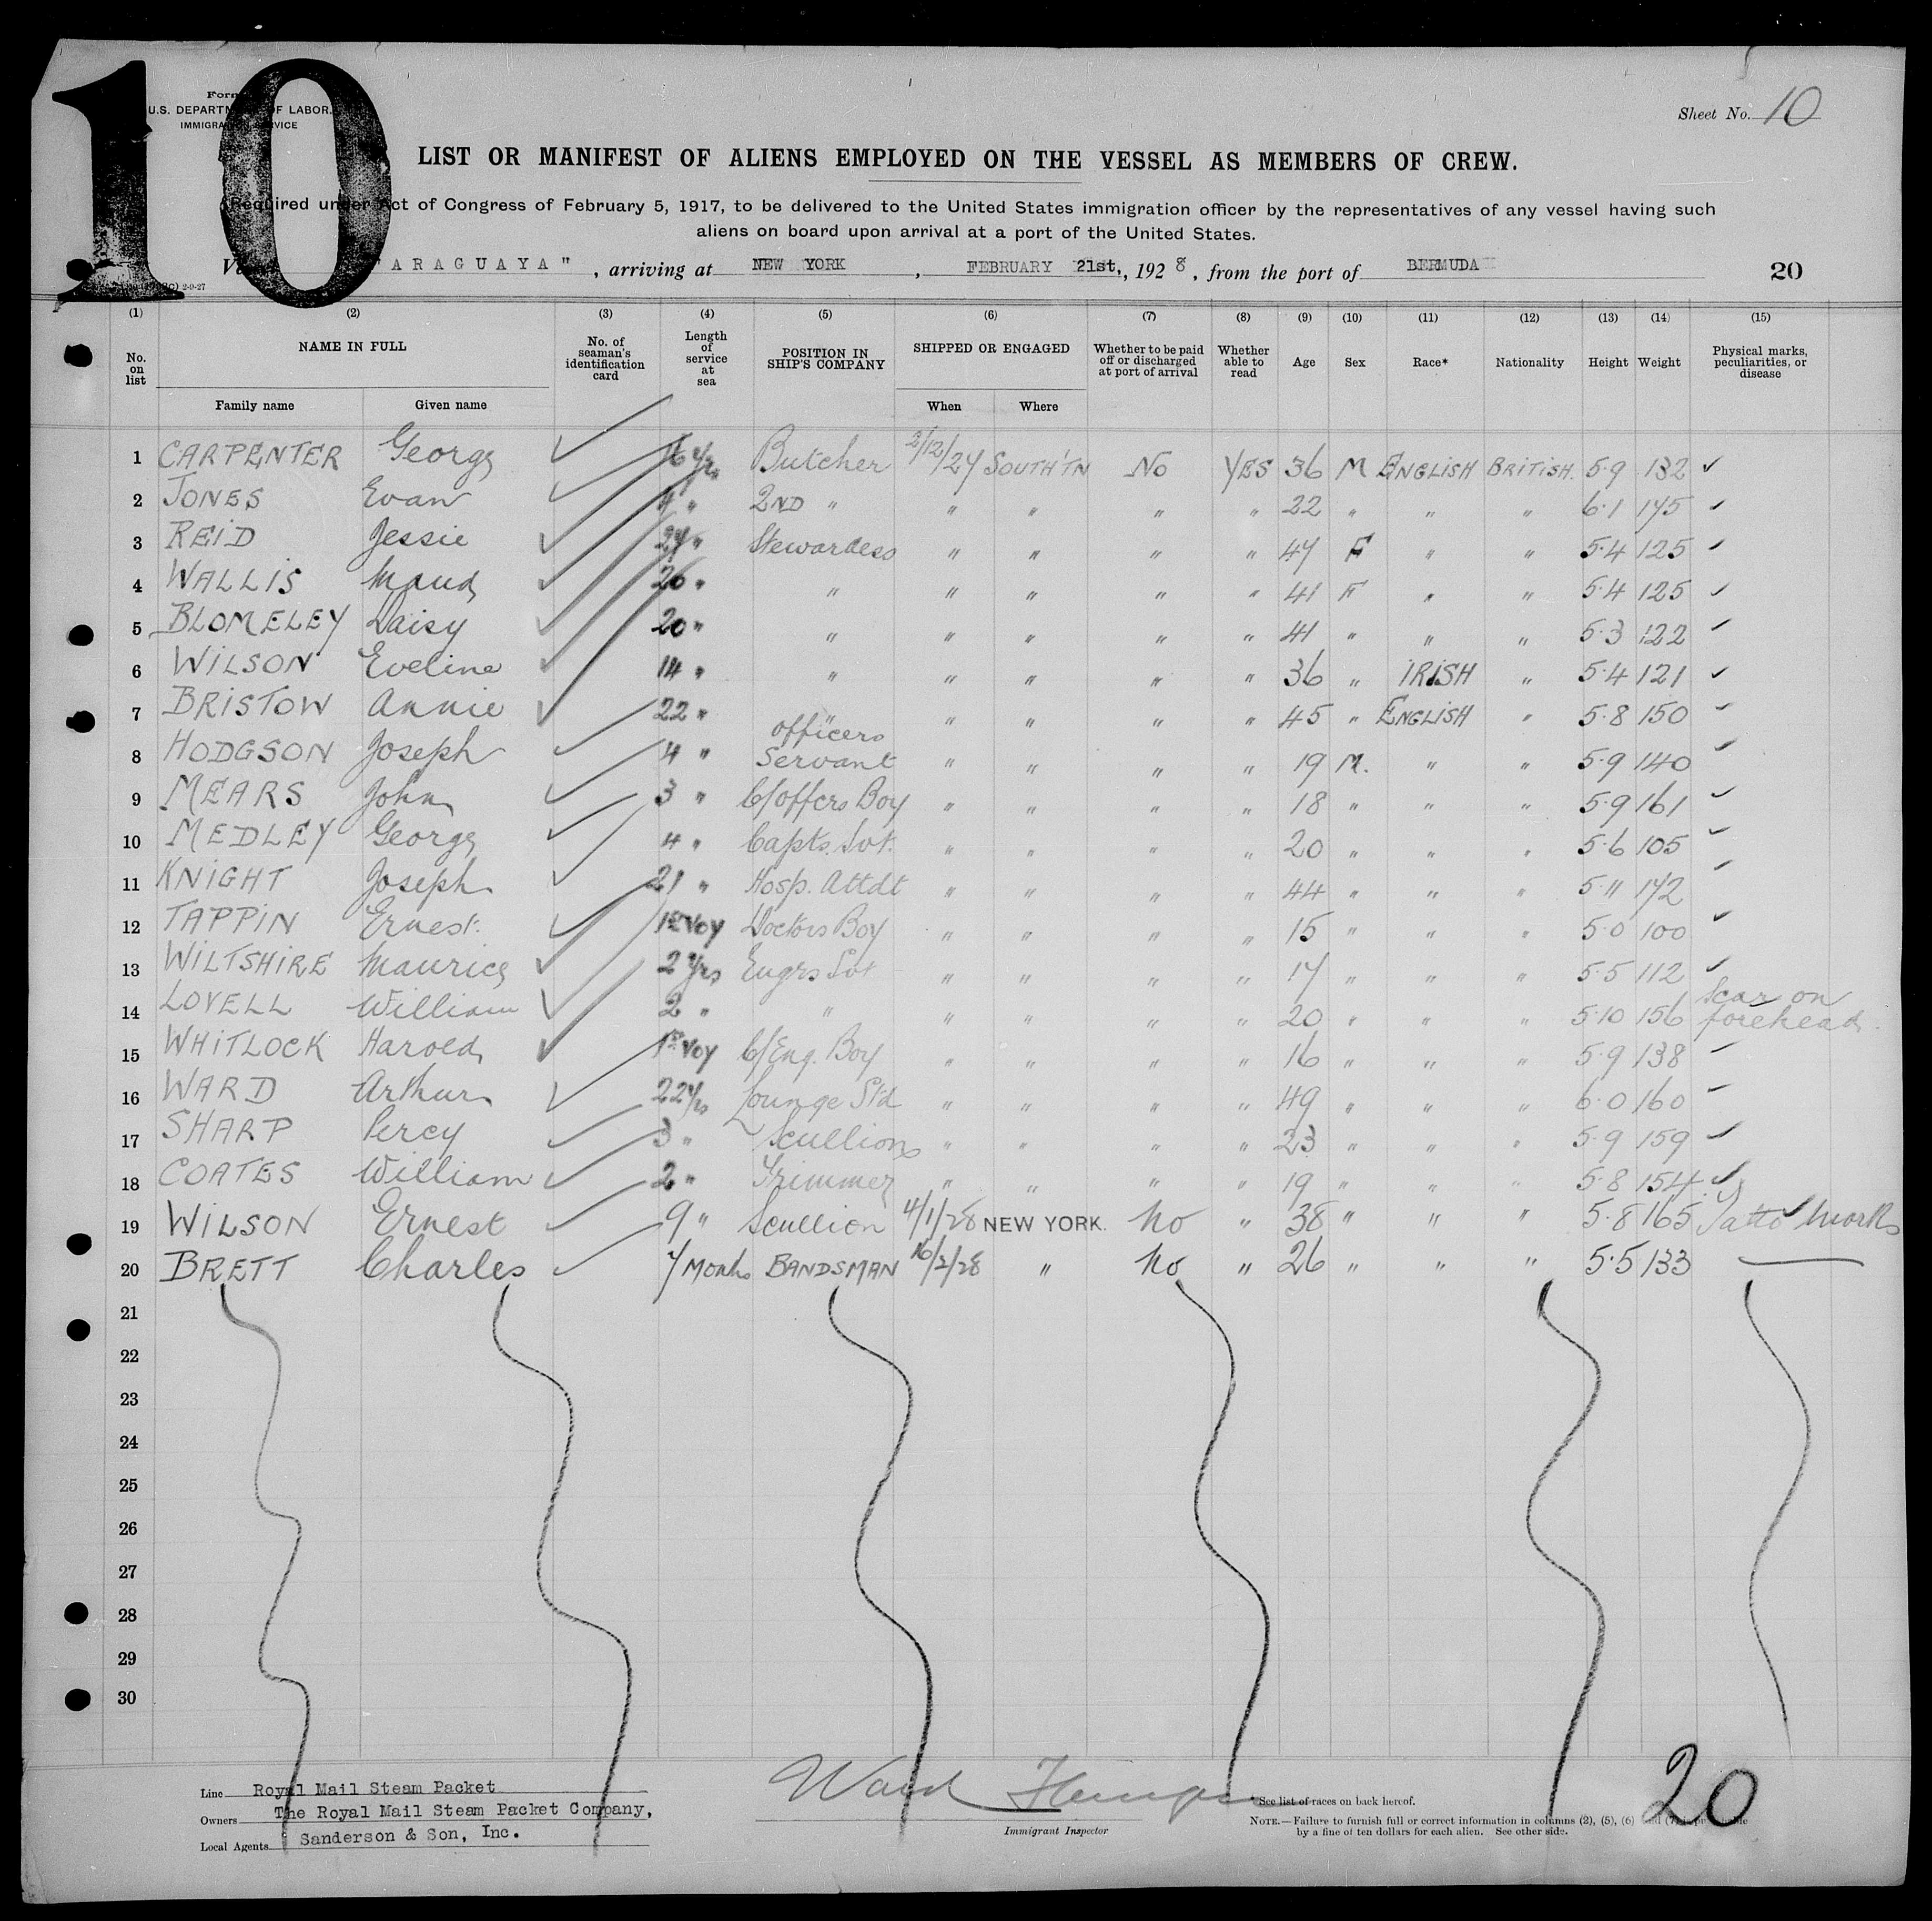 10
Form
U.S. DEPARTMENT OF LABOR.
IMMIGRATION SERVICE
Sheet No. 10
LIST OR MANIFEST OF ALIENS EMPLOYED ON THE VESSEL AS MEMBERS OF CREW.
Required under Act of Congress of February 5, 1917, to be delivered to the United States immigration officer by the representatives of any vessel having such
aliens on board upon arrival at a port of the United States.
"ARAGUAYA", arriving at NEW YORK, FEBRUARY 21st., 1928, from the port of BERMUDA 20
2-9-27
(1) (2) (3) (4) (5) (6) (7) (8) (9) (10) (11) (12) (13) (14) (15)
No. on list NAME IN FULL No. of seaman's identification card Length of service at sea POSITION IN SHIP'S COMPANY SHIPPED OR ENGAGED Whether to be paid off or discharged at port of arrival Whether able to read Age Sex Race* Nationality Height Weight Physical marks, peculiarities, or disease
Family name Given name When Where
1 CARPENTER George ✓ 6 yrs Butcher 2/12/27 SOUTH'TN No YES 36 M ENGLISH BRITISH. 5.9 132 ✓
2 JONES Evan ✓ 4 " 2ND " " " " " 22 " " " 6.1 175 ✓
3 REID Jessie ✓ 27 " Stewardess " " " " 47 F " " 5.4 125 ✓
4 WALLIS Maud ✓ 26 " " " " " " 41 F " " 5.4 125 ✓
5 BLOMELEY Daisy ✓ 20 " " " " " " 41 " " " 5.3 122 ✓
6 WILSON Eveline ✓ 14 " " " " " " 36 " IRISH " 5.4 121 ✓
7 BRISTOW Annie ✓ 22 " " " " " " 45 " ENGLISH " 5.8 150 ✓
8 HODGSON Joseph ✓ 4 " Officers Servant " " " " 19 M. " " 5.9 140 ✓
9 MEARS John ✓ 3 " C/offcrs Boy " " " " 18 " " " 5.9 161 ✓
10 MEDLEY George ✓ 4 " Capts. Svt. " " " " 20 " " " 5.6 105 ✓
11 KNIGHT Joseph ✓ 21 " Hosp. Attdt " " " " 44 " " " 5.11 172 ✓
12 TAPPIN Ernest. ✓ 1st VOY Doctors Boy " " " " 15 " " " 5.0 100 ✓
13 WILTSHIRE Maurice ✓ 2 yrs Engrs Svt " " " " 17 " " " 5.5 112 ✓
14 LOVELL William ✓ 2 " " " " " " 20 " " " 5.10 156 Scar on forehead.
15 WHITLOCK Harold ✓ 1st VOY C/Eng. Boy " " " " 16 " " " 5.9 138 ✓
16 WARD Arthur ✓ 22 yrs Lounge Std " " " " 49 " " " 6.0 160 ✓
17 SHARP Percy ✓ 3 " Scullion " " " " 23 " " " 5.9 159 ✓
18 COATES William ✓ 2 " Trimmer " " " " 19 " " " 5.8 154 ✓
19 WILSON Ernest ✓ 9 " Scullion 4/1/28 NEW YORK. No " 38 " " " 5.8 165 Tatto Marks
20 BRETT Charles ✓ 7 Months BANDSMAN 16/2/28 " No " 26 " " " 5.5 133 —
21
22
23
24
25
26
27
28
29
30
Line Royal Mail Steam Packet
Owners The Royal Mail Steam Packet Company,
Local Agents Sanderson & Son, Inc.
Ward
Immigrant Inspector
*See list of races on back hereof.
NOTE.—Failure to furnish full or correct information in columns (2), (5), (6) and (7) is punishable
by a fine of ten dollars for each alien. See other side.
20